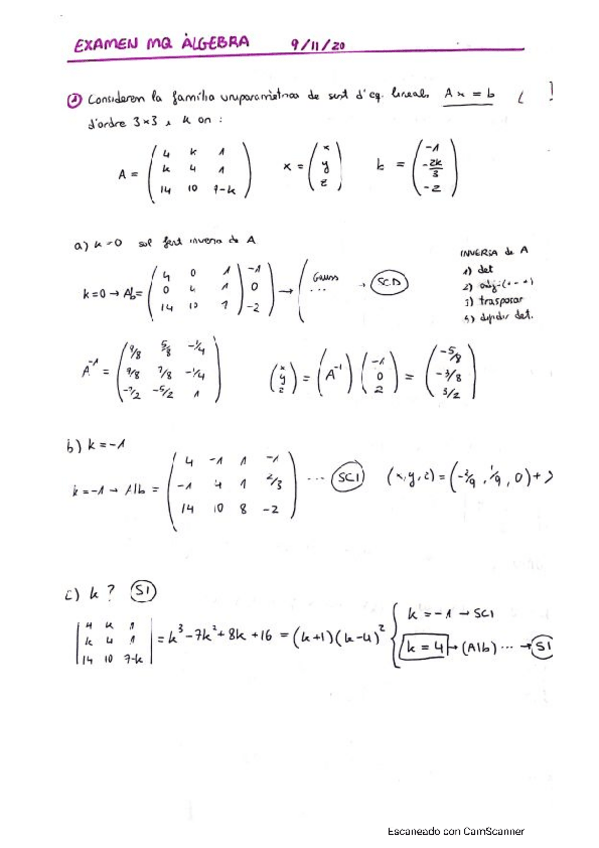 EXAMEN MQ ÀLGEBRA 9/11/20
② Considerem la família uniparamètrica de sist d'eq. lineals Ax = b
d'ordre 3x3, k on:
A = ( 4 k 1 ; k 4 1 ; 14 10 7-k ) x = ( x ; y ; z ) b = ( -1 ; -2k/3 ; -2 )
a) k=0 sol fent inversa de A
INVERSA de A
1) det
2) adj (+ - +)
3) trasposar
4) dividir det.
k=0 → A|b = ( 4 0 1 -1 ; 0 4 1 0 ; 14 10 7 -2 ) → ( Gauss ... → SCD
A⁻¹ = ( 9/8 5/8 -1/4 ; 7/8 7/8 -1/4 ; -7/2 -5/2 1 ) ( x ; y ; z ) = ( A⁻¹ ) ( -1 ; 0 ; 2 ) = ( -5/8 ; -3/8 ; 3/2 )
b) k=-1
k=-1 → A|b = ( 4 -1 1 -1 ; -1 4 1 2/3 ; 14 10 8 -2 ) ... SCI (x,y,z) = (-2/9, 1/9, 0) +
c) k? SI
| 4 k 1 ; k 4 1 ; 14 10 7-k | = k³-7k²+8k+16 = (k+1)(k-4)² { k=-1 → SCI
k=4 → (A|b) ... → SI
Escaneado con CamScanner